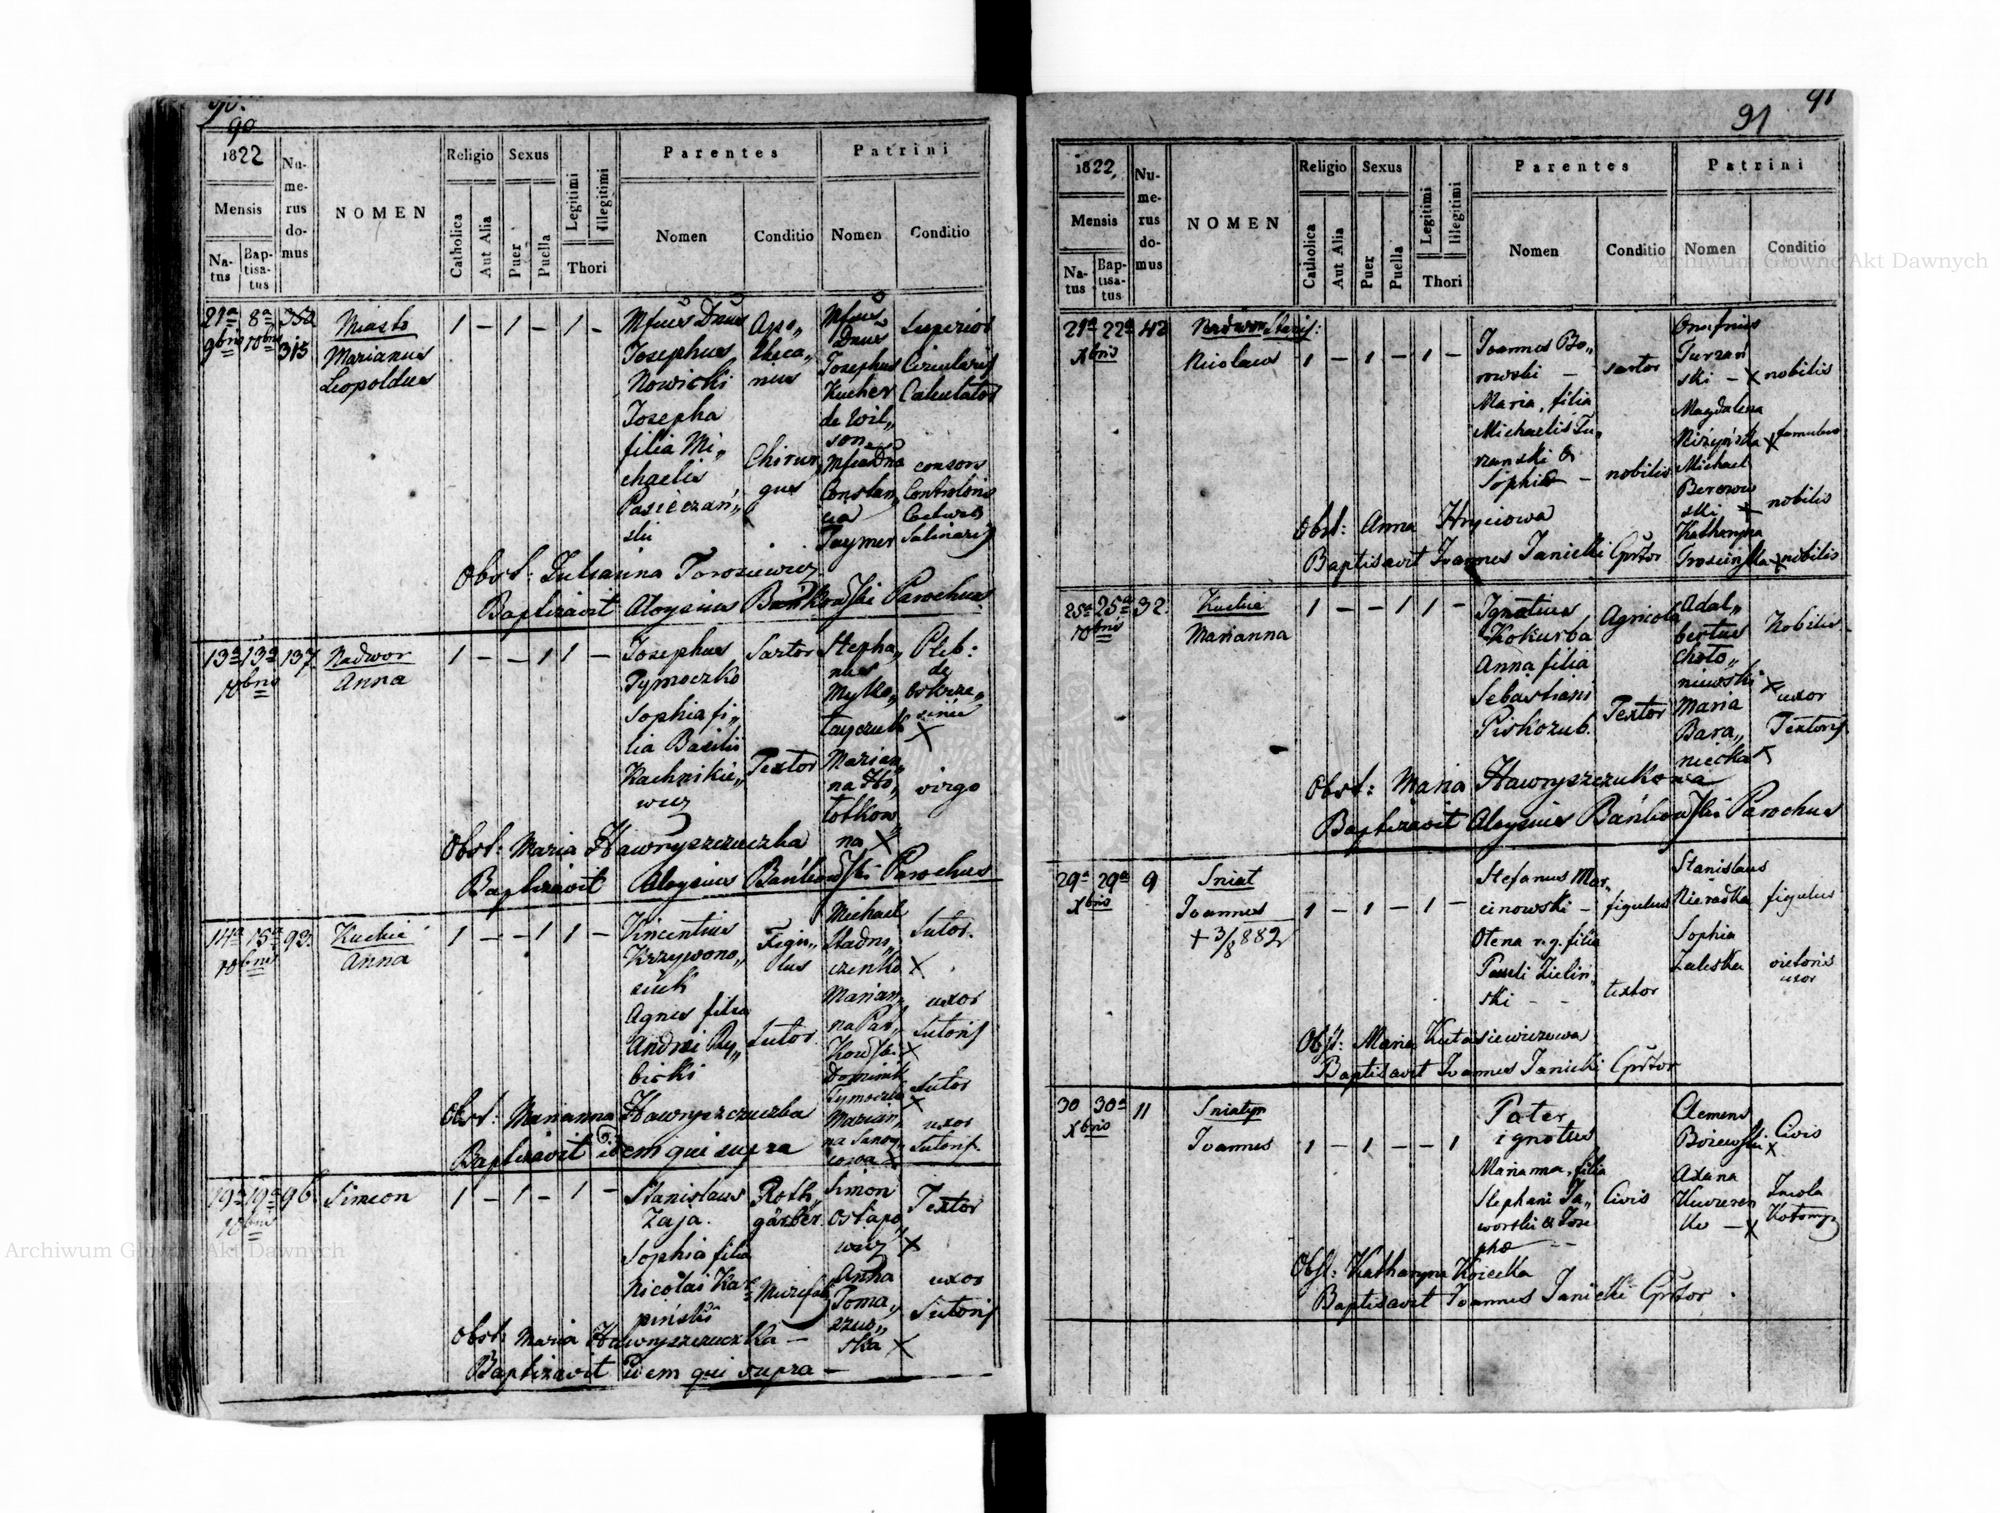 90.
90
1822
Mensis
Na-
tus
Bap-
tisa-
tus
Nu-
me-
rus
do-
mus
NOMEN
Religio
Catholica
Aut Alia
Sexus
Puer
Puella
Legitimi
Illegitimi
Thori
Parentes
Nomen
Conditio
Patrini
Nomen
Conditio
21a 8a 352
9bris 10bris 315
Miasto
Marianus
Leopoldus
1 – 1 – 1 –
Josephus
Nowicki
Josepha
filia Mi„
chaelis
Pasieczań„
ski
Apo„
theca„
rius
Chirur„
gus
Josephus
Kucher
de Wil„
son
Constan„
cia
Paymer
Superior
Circularis
Calculator
consors
Salinaris
Obst: Julianna Torosiewicz
Baptizavit Aloysius Bańkowski Parochus
13a 13a 137.
10bris
Nadwor
Anna
1 – – 1 1 –
Josephus
Tymoczko
Sophia fi„
lia Basilii
Kachnikie„
wicz
Sartor
Textor
Stepha„
nus
Myko„
Marian„
na Ho„
na X
Pleb:
de
X
virgo
Obst: Maria Hawryszczuczka
Baptizavit Aloysius Bańkowski Parochus
14a 15a 93.
10bris
Kuchie
Anna
1 – – 1 1 –
Vincentius
Krzywono„
siuk
Agnes filia
Andrei Ry„
bicki
Figu„
lus
Sutor.
Michael
Stadni„
czenko
Marian„
Dominik
Marian„
Sutor.
X
uxor
Sutoris
X
Sutor
X
uxor
Sutoris.
Obst: Marianna Hawryszczuczka
Baptizavit idem qui supra
19a 19a 96.
10bris
Simeon
1 – 1 – 1 –
Stanislaus
Zaja.
Sophia filia
Nicolai Kar„
piński
Roth„
gärber.
Simon
Ostapo„
wicz
Anna
Toma„
szew„
ska
Textor
X
uxor
Sutoris
X
Obst: Maria Hawryszczuczka –
Baptizavit Idem qui supra –
91
91
1822,
Mensis
Na-
tus
Bap-
tisa-
tus
Nu-
me-
rus
do-
mus
NOMEN
Religio
Catholica
Aut Alia
Sexus
Puer
Puella
Legitimi
Illegitimi
Thori
Parentes
Nomen
Conditio
Patrini
Nomen
Conditio
21a 22a 42
Xbris
Nicolaus
1 – 1 – 1 –
Joannes Bo„
rowski –
Maria, filia
Michaelis Tu„
rzanski &
Sophiæ –
sartor
nobilis
Onufrius
Turzań
ski – X
Magdalena
Michael
Katharyna
nobilis
famulus
nobilis
nobilis
Obst: Anna Hryciowa
Baptisavit Joannes Janicki
25a 25a 32.
10bris
Kuchie
Marianna
1 – – 1 1 –
Ignatius
Kokurba
Anna filia
Sebastiani
Piskozub.
Agricola
Textor
Adal„
bertus
Choto„
niewski
Maria
Bara„
niecka
Nobilis
X
uxor
Textoris
Obst: Maria Hawryszczukowa
Baptizavit Aloysius Bańkowski Parochus
29a 29a 9
Xbris
Sniat
Joannes
+ 3/8 882
1 – 1 – 1 –
Stefanus Mar„
cinowski –
Olena r. g. filia
Pauli Zieliń„
ski – –
figulus
textor
Stanislaus
Sophia
Zaleska
figulus
uxor
Obst: Maria Kutasiewiczowa
Baptisavit Joannes Janicki
30 30a 11
Xbris
Sniatyn
Joannes
1 – 1 – – 1
Pater
ignotus
Marianna, filia
Stephani Ja„
worski & Jose
phæ – –
Civis
Clemens
X
Civis
X
Incola
Obst: Katharyna Koicka
Baptisavit Joannes Janicki
Archiwum Główne Akt Dawnych
Archiwum Główne Akt Dawnych